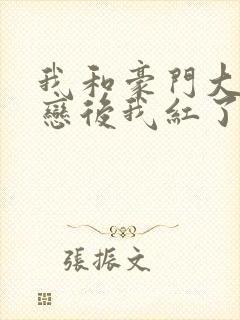 我和豪門大
戀後我紅了
張振文